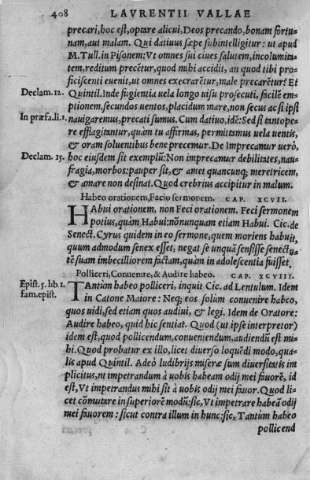 408 LAVRENTII VALLAE
precari, hoc est, optare alicui, Deos precando, bonam fortu-
nam, aut malam. Qui datiuus sæpe subintelligitur: ut apud
M. Tull. in Pisonem: Vt omnes sui ciues salutem, incolumita-
tem, reditum precẽtur, quod mihi accidit, an quod tibi pro-
ficiscenti euenit, ut omnes execrarẽtur, male precarẽtur? Et
Declam. 12. Quintil. Inde fugientia uela longo uisu prosecuti, facilẽ em-
ptionem, secundos uentos, placidum mare, non secus ac si ipsi
In præfa. li. 1. nauigaremus, precati sumus. Cum datiuo, idẽ: Sed si tantope-
re efflagitantur, quàm tu affirmas, permittamus uela uentis,
& oram soluentibus bene precemur. De Imprecamur uerò,
Declam. 15. hoc eiusdem sit exemplũ: Non imprecamur debilitates, nau-
fragia, morbos: pauper sit, & amet quancunq; meretricem,
& amare non desinat. Quod crebrius accipitur in malum.
Habeo orationem, Facio sermonem. CAP. XCVII.
HAbui orationem, non Feci orationem. Feci sermonem
potius, quàm Habui: nõnunquam etiam Habui. Cic. de
Senect. Cyrus quidem in eo sermone, quem moriens habuit,
quum admodum senex esset, negat se unquã sensisse senectu-
tẽ suam imbecilliorem factam, quàm in adolescentia fuisset.
Polliceri, Conuenire, & Audire habeo. CAP. XCVIII.
Epist. 5. lib. 1. TAntùm habeo polliceri, inquit Cic. ad Lentulum. Idem
fam. epist. in Catone Maiore: Neq; eos solùm conuenire habeo,
quos uidi, sed etiam quos audiui, & legi. Idem de Oratore:
Audire habeo, quid hic sentiat. Quod (ut ipse interpretor)
idem est, quod pollicendum, conueniendum, audiendũ est mi-
hi. Quod probatur ex illo, licet diuerso loquẽdi modo, qua-
lis apud Quintil. Adeò ludibrijs miseræ sum diuersissimis im-
plicitus, ni impetrandum à uobis habeam odij mei fauorẽ, id
est, Vt impetrandus mihi sit à uobis odij mei fauor. Quod li-
cet cõmutare in superiorẽ modũ: sic, Vt impetrare habeã odij
mei fauorem: sicut contra illum in hunc: sic, Tantùm habeo
pollicend